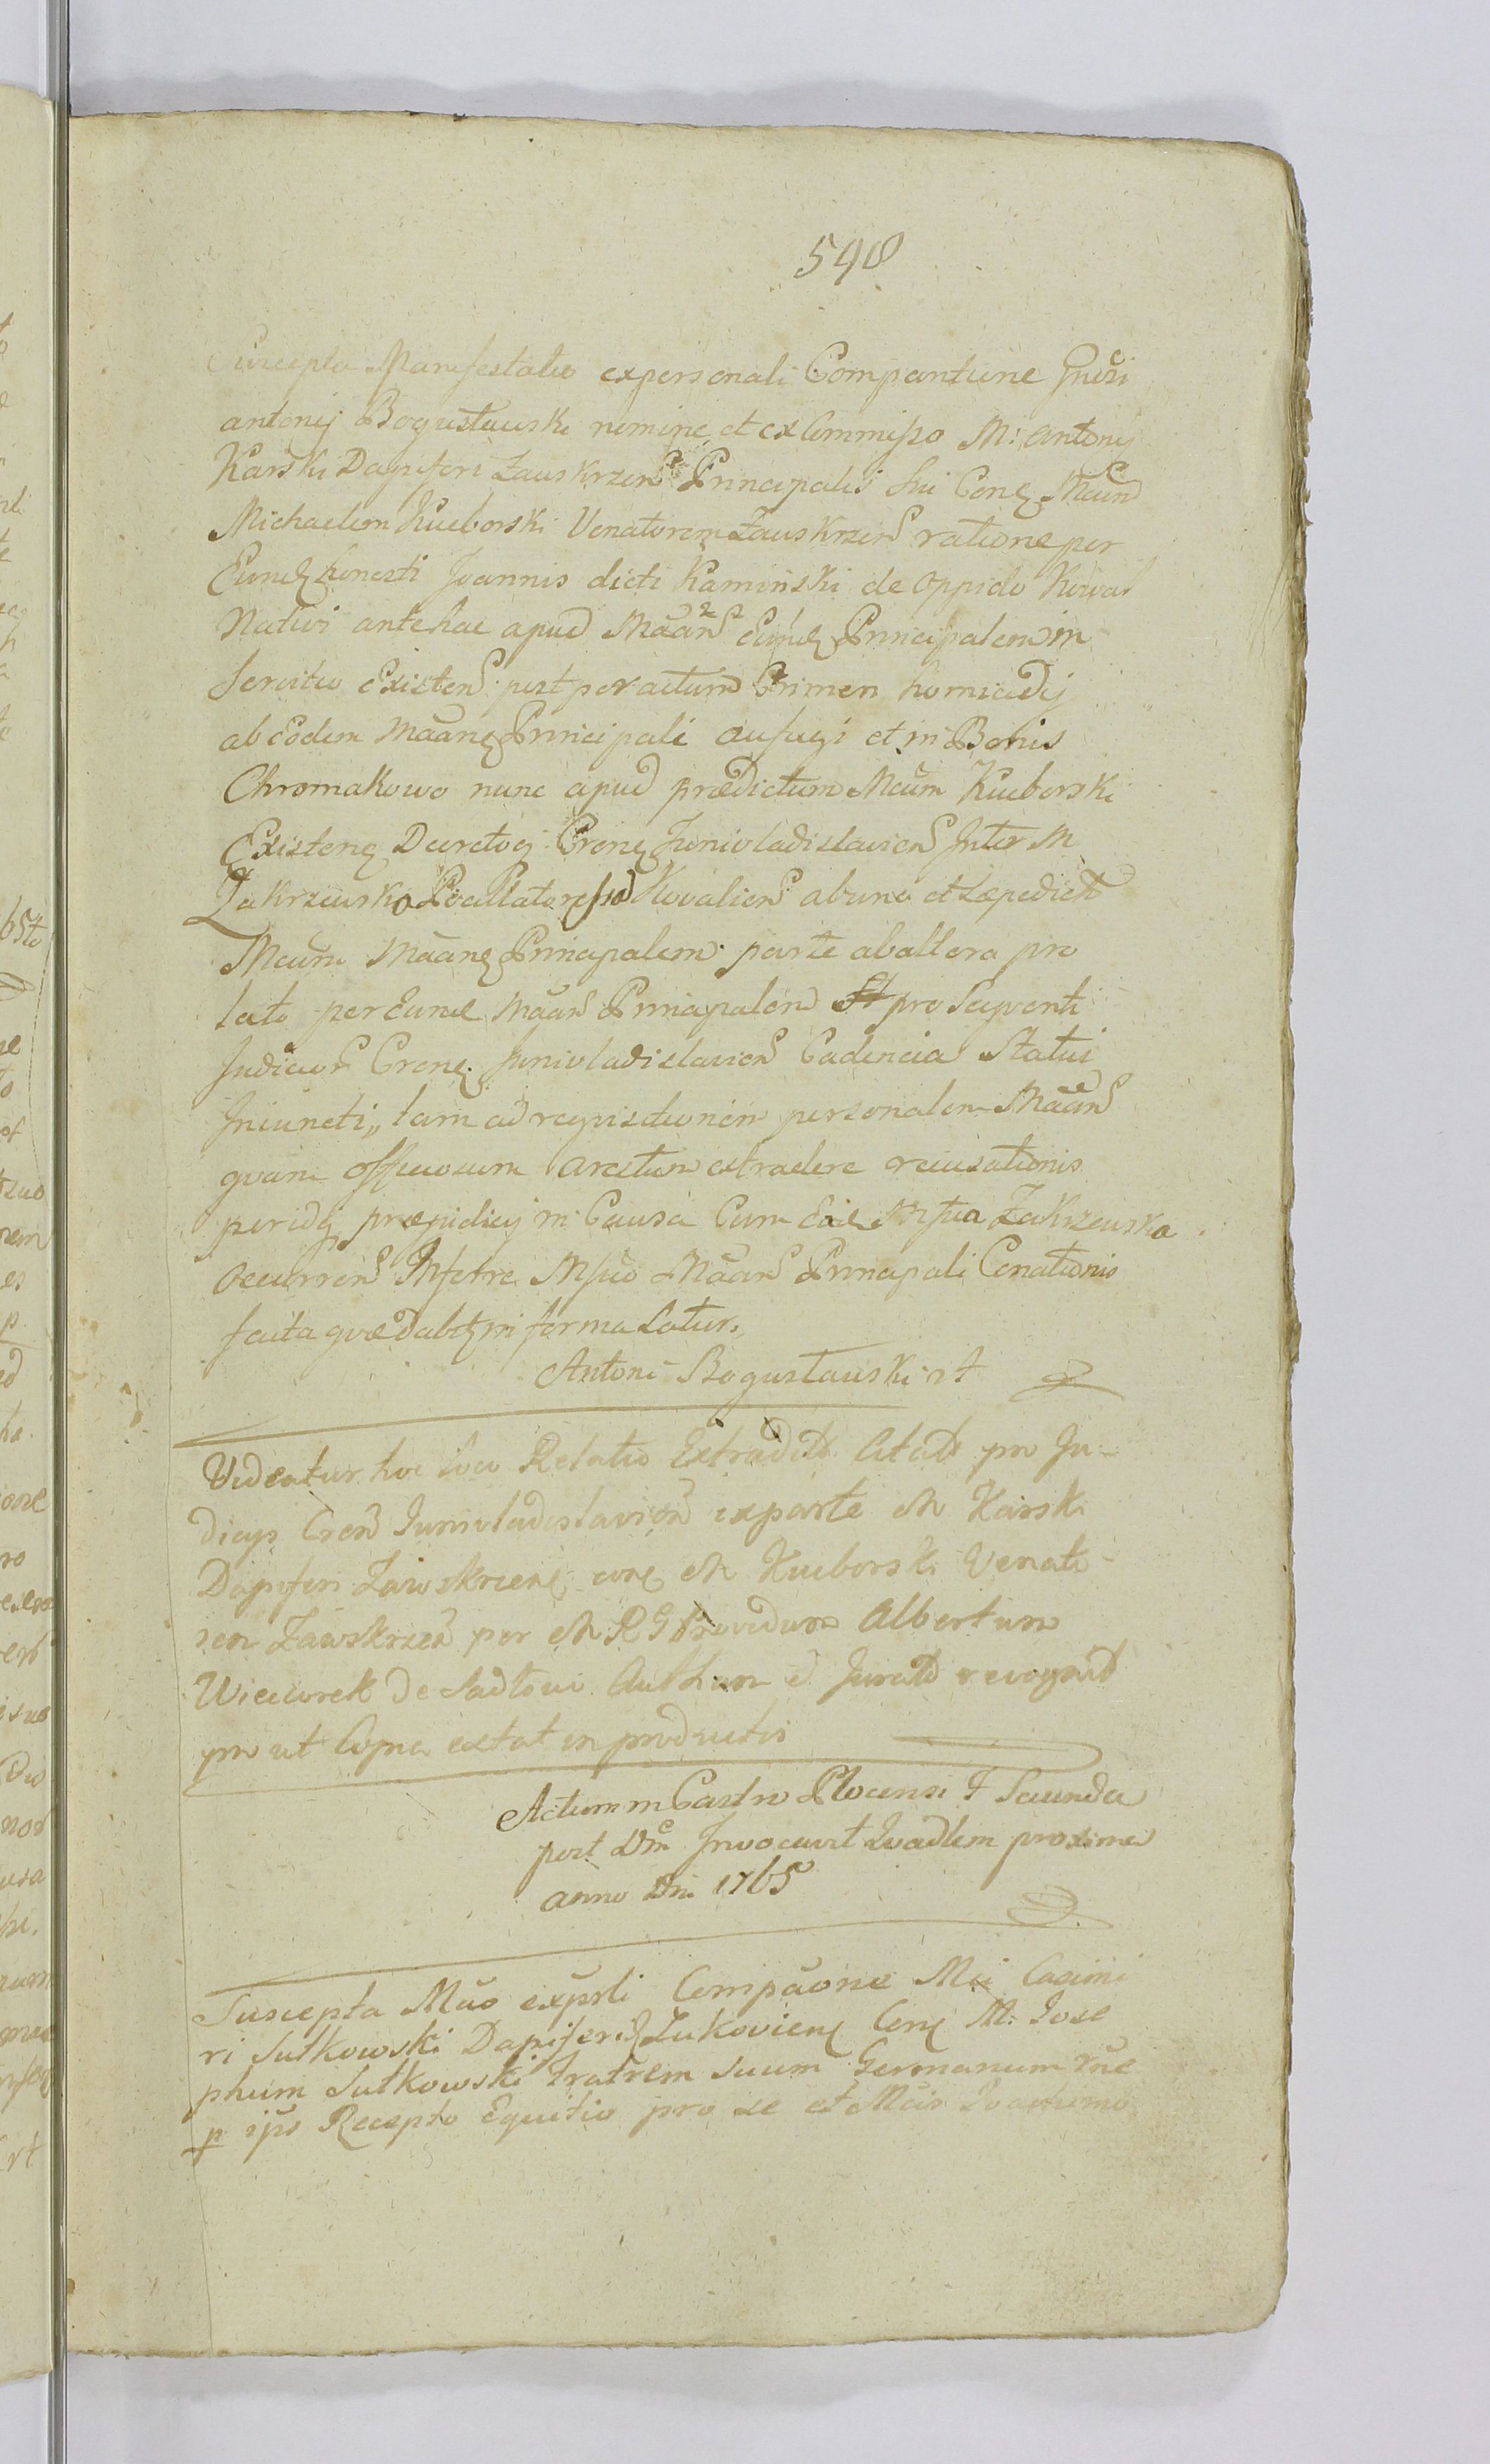 548
Suscepta Manifestatio ex personali Compantione Gnosi
antonij Bogusławski nomine et ex Commisso M: Antonij
Karski Dapiferi Zauskrzen Principalis sui Cone Mcum
Michaelem Kucborski Venatorem Zauskrzen ratione per
Eund honesti Joannis dicti Kamiński de Oppido Kowal
Nativi antehac apud Māān Eund Principalem in
servitio Existen post peractum Crimen homicidij
ab eodem Māāne Principali aufugi et in Bonis
Chromakowo nunc apud prædictum Mcum Kucborski
Existene Decretoq Crene Juniuladislavien Inter M
Zakrzewska Kovalien ab una et
Mcum Māāne Principalem parte ab altera pro
lato per Eund Māān Principalem pro Seqventi
Judicior Crene Juniuladislavien Cadencia Statui
Iniuncti, tam ad reqvisitionem personalem Māān
qvam Officiosum Arestum extradere recusationis
peridq præjudicij in Causa Cum Eade Mfica Zakrzewska
occurren Inferre Mfico Māān Principali Conationis
facta qvæ dabt in forma Latur.
Antoni Bogusławski rt
Videatur hoc loco Relatio Extradit Citatt pro Ju-
dicys Cren Juniuladislavien ex parte M Karski
Dapiferi Zawskrzene cone M Kucborski Venato-
rem Zawskrzen per M R G Providum Albertum
Wieczorek de Sadłowo Authum et Jurat recognit
pro ut Copia extat in productis
Actum in Castro Plocensi F Secunda
post Dm Invocavit Qvadlem proxima
anno Dni 1765
Suscepta Māo ex psli Compāone Mci Casimi
ri Sutkowski Dapiferi Lukoviene Cone M. Jose
phum Sutkowski Fratrem Suum Germanum rne
p ips Recepto Equitio pro se et Mcis